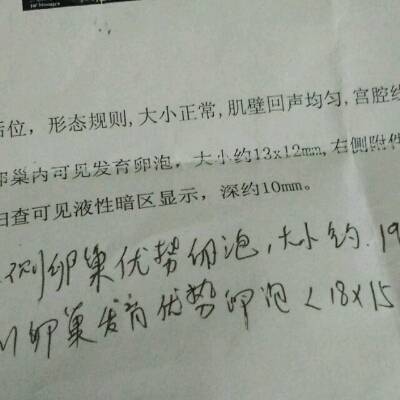 后位，形态规则,大小正常,肌壁回声均匀,宫腔线
卵巢内可见发育卵泡，大小约13x12mm,右侧附件
扫查可见液性暗区显示，深约10mm。
测卵巢优势卵泡,大小约.19
卵巢发育优势卵泡<18X15